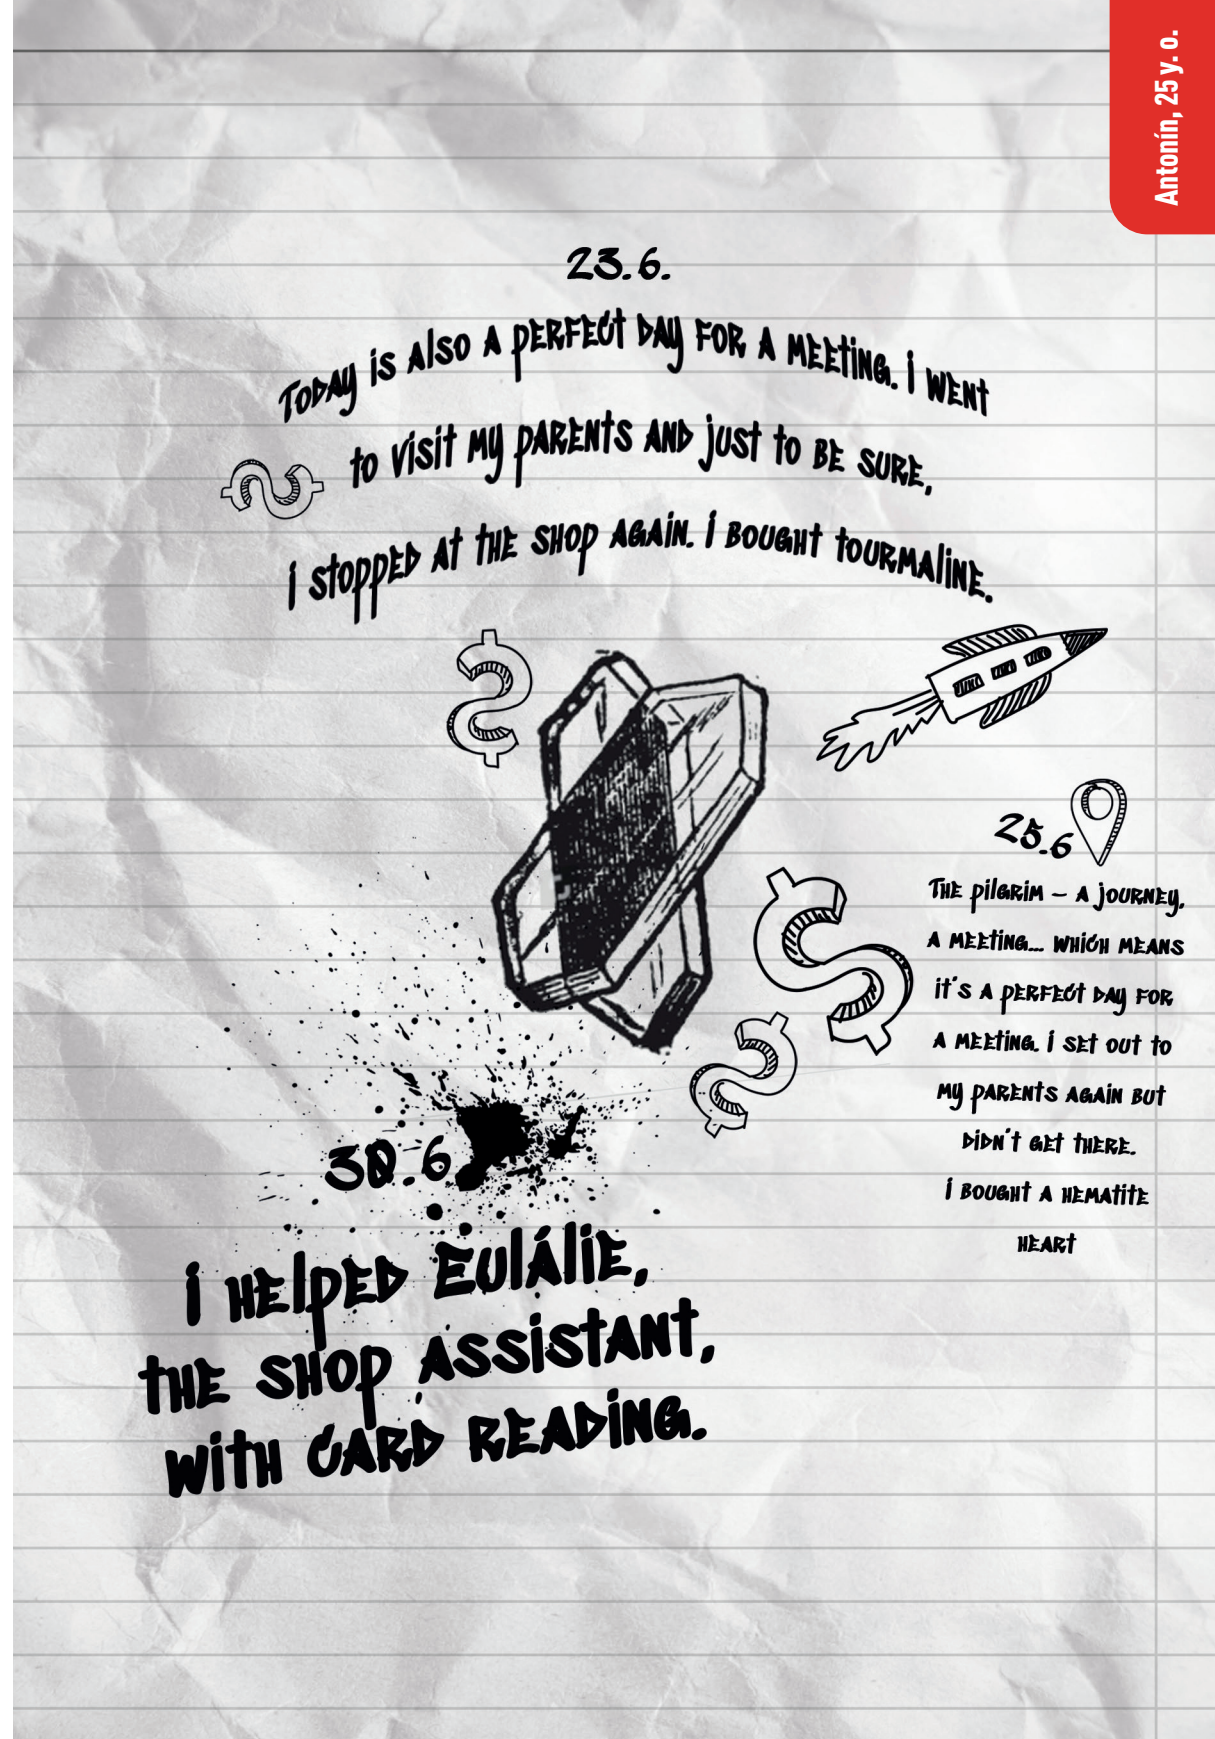 Antonín, 25 y. o.
23.6.
Today is also a perfect day for a meeting. I went
to visit my parents and just to be sure,
I stopped at the shop again. I bought tourmaline.
25.6
The pilgrim – a journey,
a meeting... which means
it's a perfect day for
a meeting. I set out to
my parents again but
didn't get there.
I bought a hematite
heart
30.6
I helped Eulálie,
the shop assistant,
with card reading.